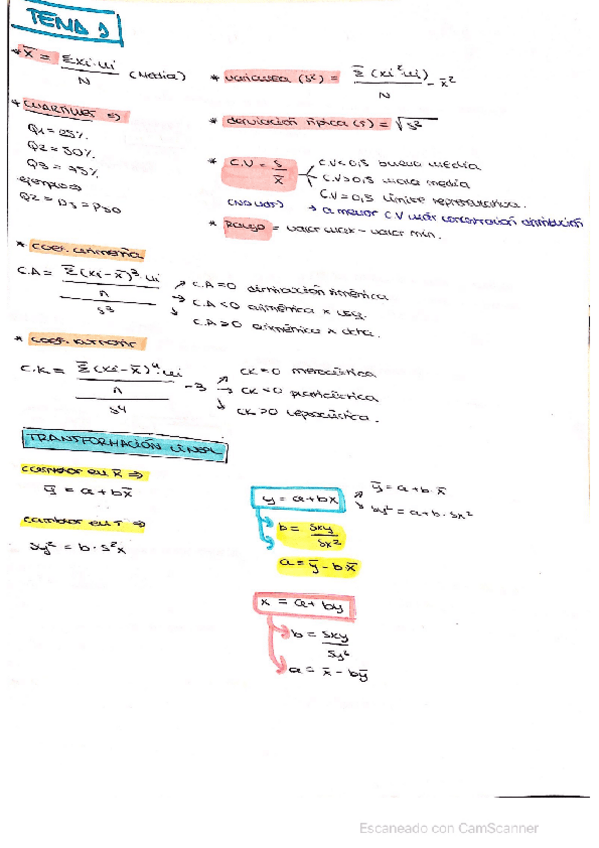 TEMA 1
* x̄ = Σxi·ni / N (Media)
* CUARTILES ⇒
Q1 = 25%
Q2 = 50%
Q3 = 75%
ejemplo ⇒
Q2 = D5 = P50
* varianza (s²) = Σ(xi²·ni) / N - x̄²
* desviación típica (s) = √s²
* C.V = s / x̄
C.V<0,5 buena media
C.V>0,5 mala media
C.V = 0,5 límite representativa.
→ a menor C.V mayor concentración distribución
* Rango = valor máx - valor mín.
* coef. asimetría
C.A = Σ(xi-x̄)³·ni / n / s³
C.A=0 distribución simétrica
C.A<0 asimétrica x izq.
C.A>0 asimétrica x dcha.
* coef.
C.K = Σ(xi-x̄)⁴·ni / n / s⁴ - 3
CK=0 mesocúrtica
CK<0 platicúrtica
CK>0 leptocúrtica.
TRANSFORMACIÓN LINEAL
cambios en x̄ ⇒
ȳ = a + bx̄
cambios en s ⇒
sy² = b · s²x
y = a+bx
ȳ = a+b·x̄
sy² = a+b·sx²
b = sxy / sx²
a = ȳ - bx̄
x = a+ by
b = sxy / sy²
a = x̄ - bȳ
Escaneado con CamScanner